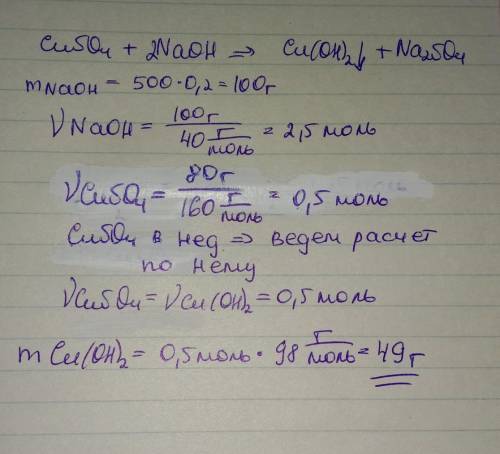 CuSO₄ + 2NaOH ⇒ Cu(OH)₂↓ + Na₂SO₄
mNaOH = 500·0,2 = 100г
νNaOH = 100г / 40 г/моль = 2,5 моль
νCuSO₄ = 80г / 160 г/моль = 0,5 моль
CuSO₄ в нед ⇒ ведем расчет
по нему
νCuSO₄ = νCu(OH)₂ = 0,5 моль
m Cu(OH)₂ = 0,5 моль · 98 г/моль = 49 г